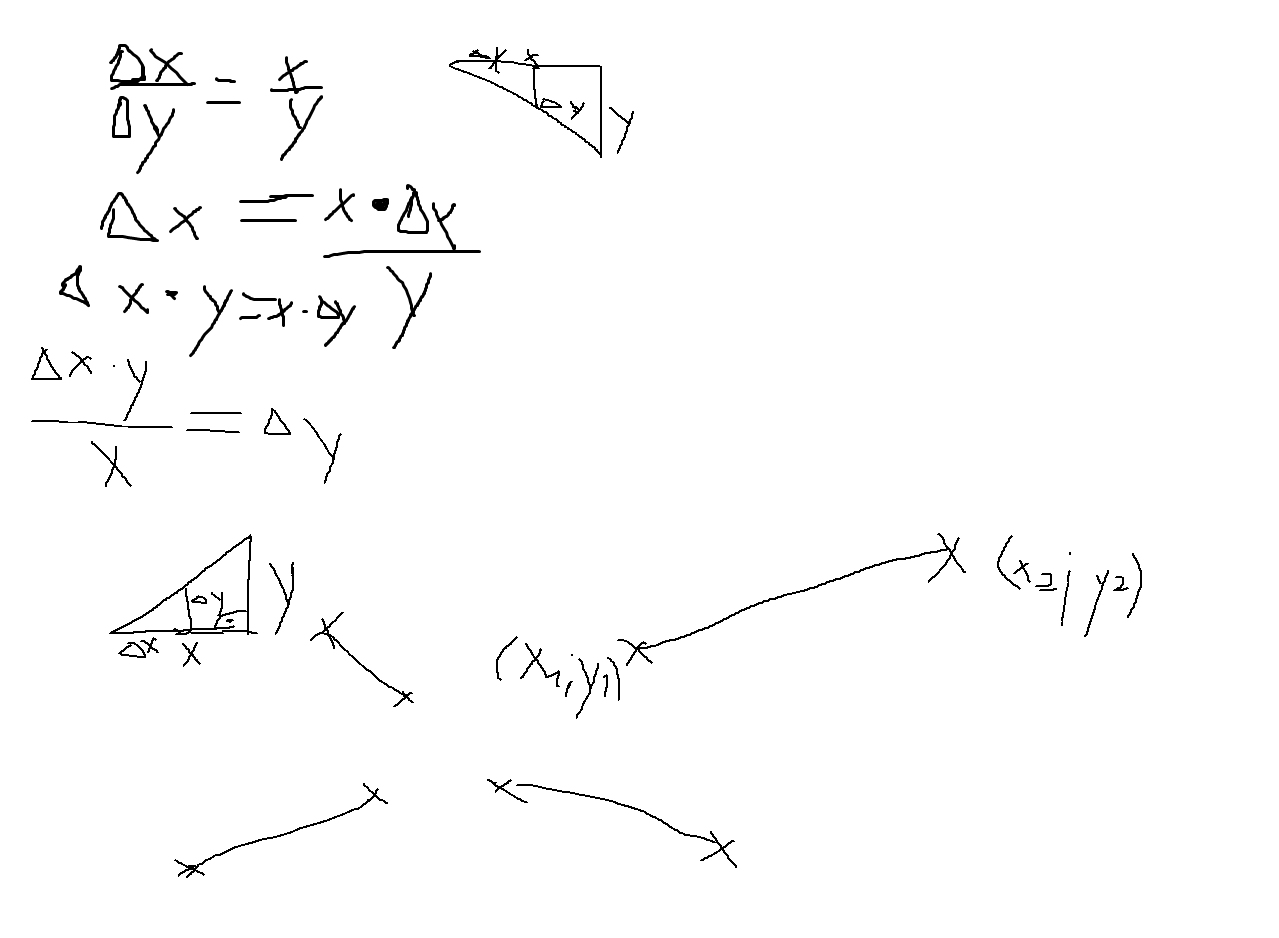 Δx/Δy = x/y
Δx x
Δy y
Δx = x · Δy / y
Δx · y = x · Δy
Δx · y / x = Δy
Δy y
Δx x
(x2; y2)
(x1; y1)